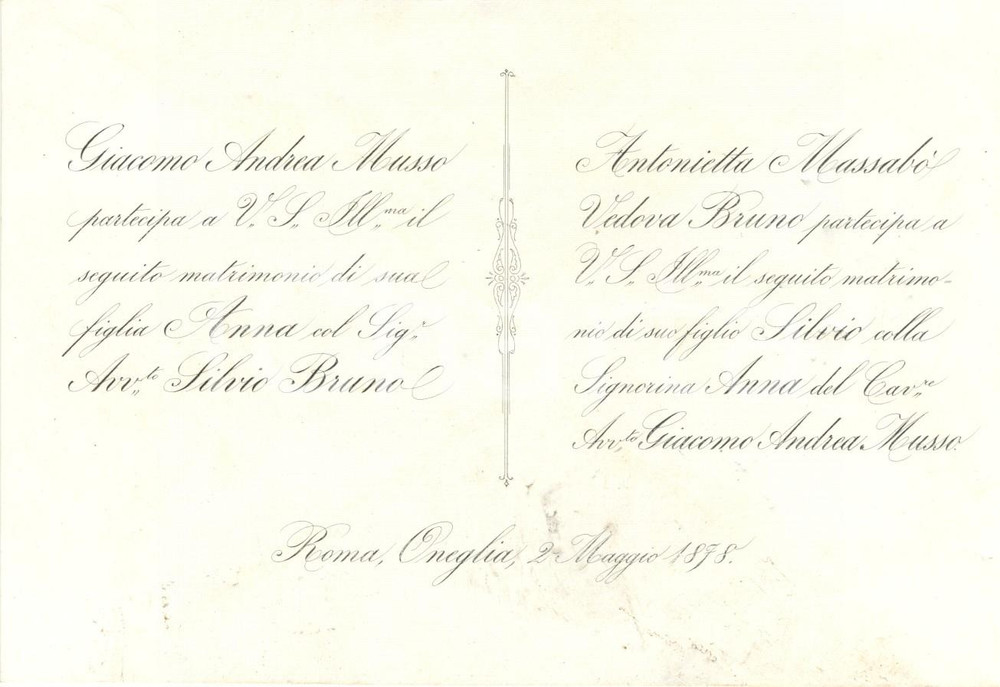 Giacomo Andrea Musso
partecipa a V. S. Ill.ma il
seguito matrimonio di sua
figlia Anna col Sig.r
Avv.to Silvio Bruno
Antonietta Massabò
Vedova Bruno partecipa a
V. S. Ill.ma il seguito matrimo-
nio di suo figlio Silvio colla
Signorina Anna del Cav.re
Avv.to Giacomo Andrea Musso.
Roma, Oneglia, 2 Maggio 1878.